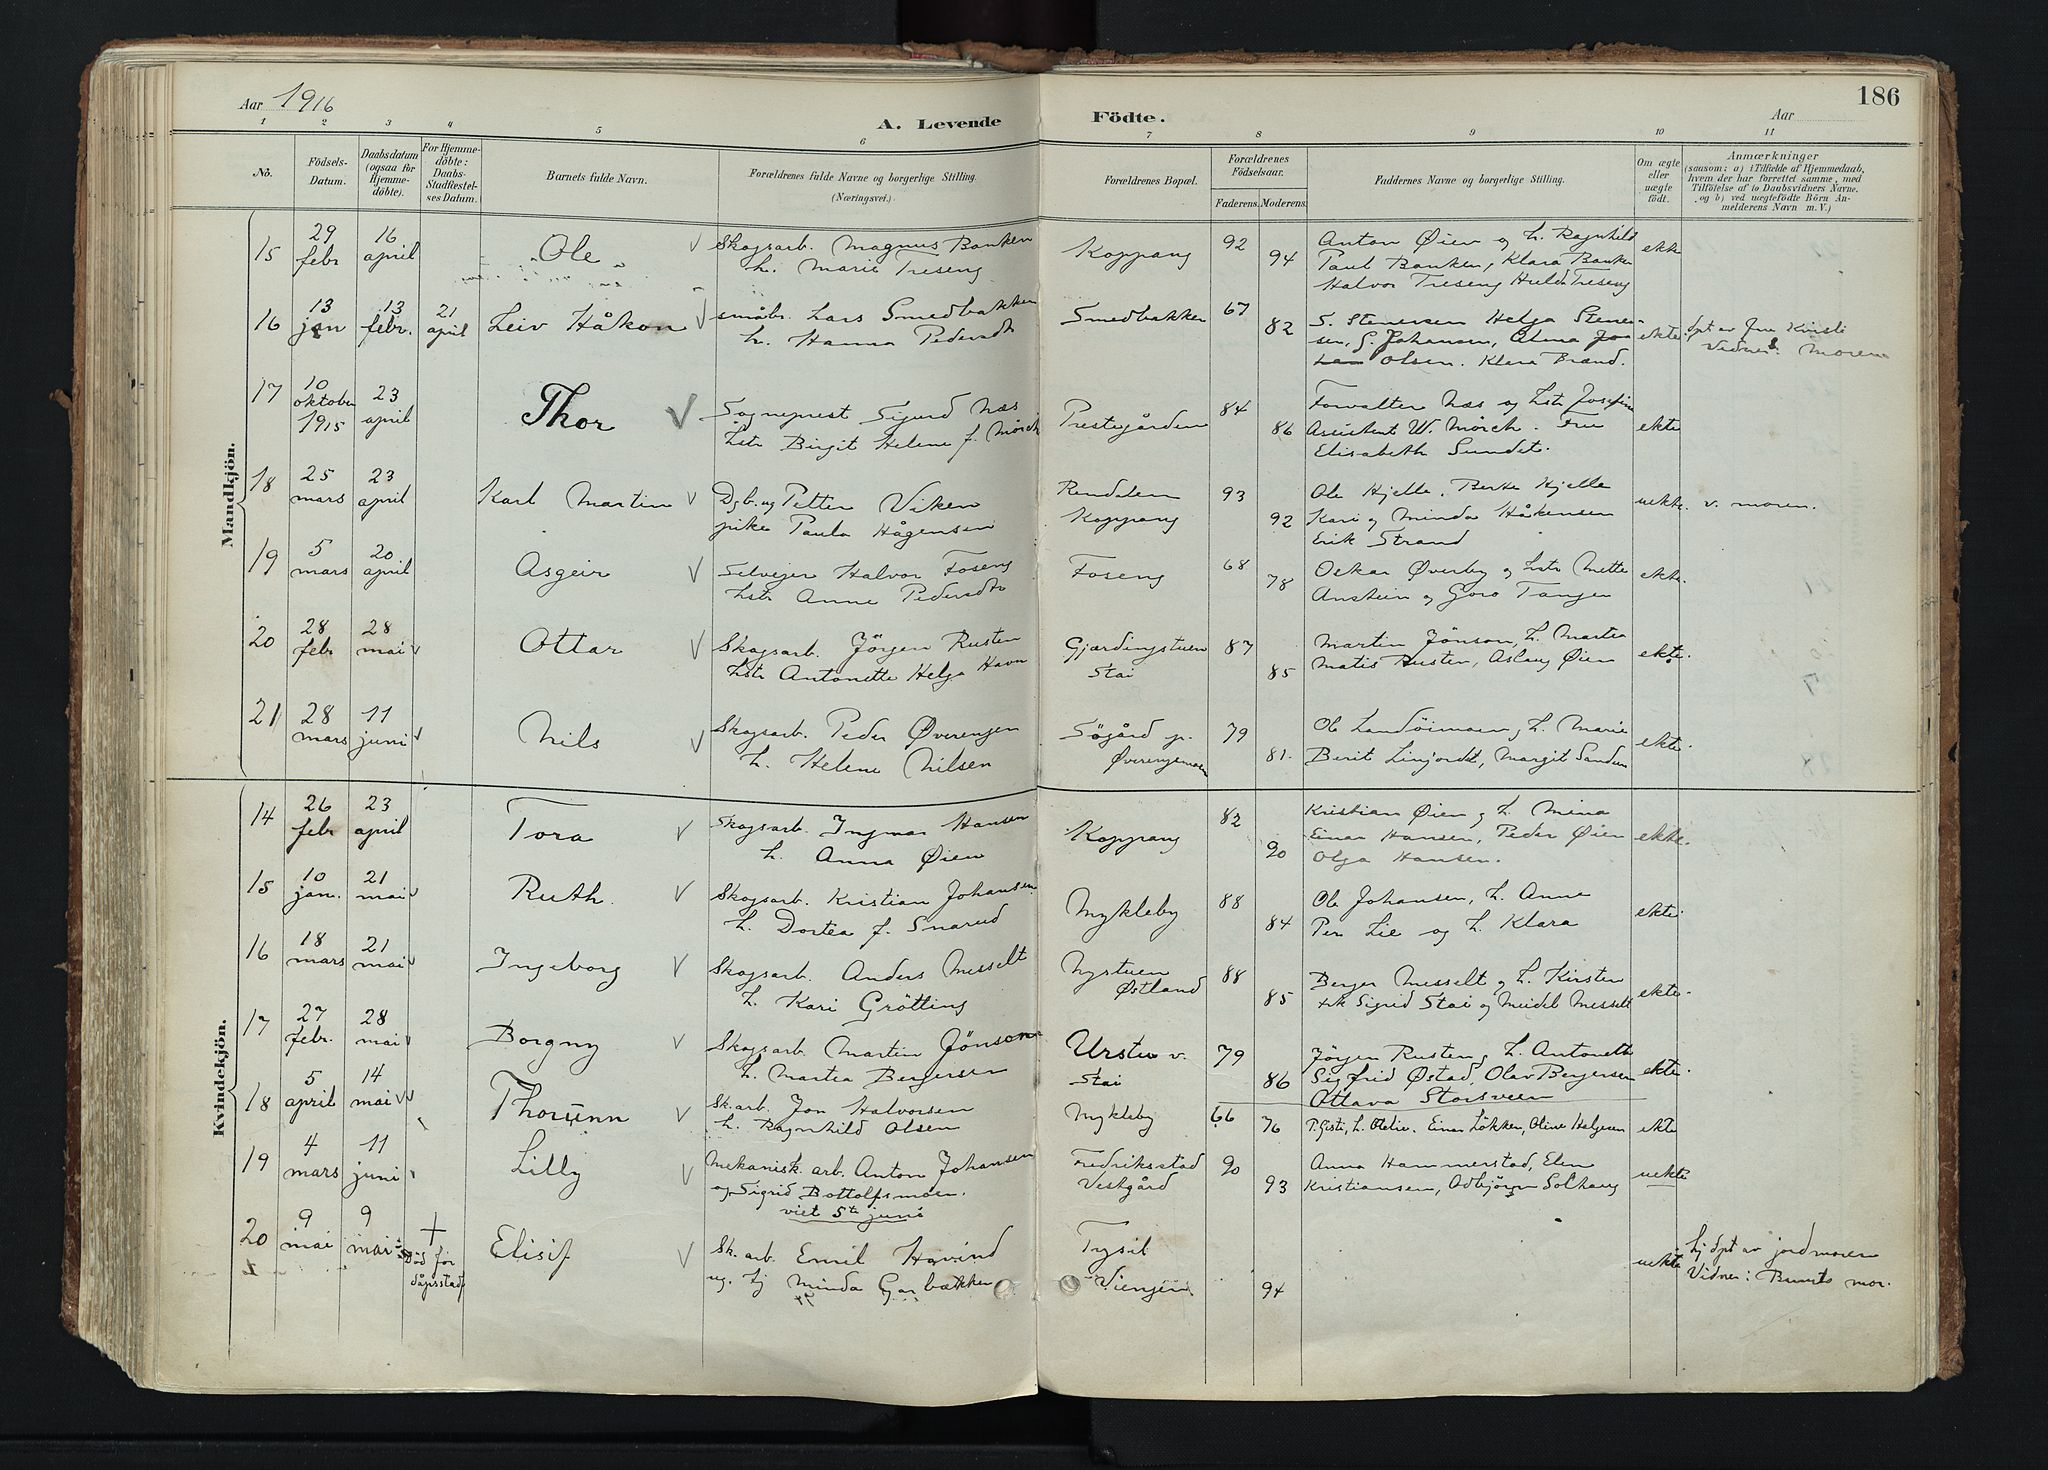 Aar 1916
A. Levende Födte.
Aar
186
1 2 3 4 5 6 7 8 9 10 11
No.
Födsels-Datum.
Daabsdatum (ogsaa for Hjemmedöbte).
For Hjemmedöbte: Daabs-Stadfæstelses Datum.
Barnets fulde Navn.
Forældrenes fulde Navne og borgerlige Stilling. (Næringsvei.)
Forældrenes Bopæl.
Forældrenes Födselsaar.
Faderens. Moderens.
Faddernes Navne og borgerlige Stilling.
Om ægte eller uægte födt.
Anmærkninger
(saasom: a) i Tilfælde af Hjemmedaab, hvem der har forrettet samme, med Tilföielse af to Daabsvidners Navne, og b) ved uægtefödte Börn Anmelderens Navn m. V.)
Mandkjön.
15 29 febr 16 april Ole Skogsarb. Magnus Banken
h. Marie Treseng
Koppang 92 94
Anton Øien og h. Ragnhild
Paul Banken, Klara Banken
Halvor Treseng Hulda Treseng
ekte
16 13 jan 13 febr. 21 april Leiv Håkon småbr. Lars Smedbakken
h. Hanna Pedersdtr
Smedbakken 67 82
S. Stenersen Helga Stener-
sen, G. Johansen, Alma
Olsen. Klara Brænd.
ekte dpt av fru Kvisli
Vidner: Moren
17 10 oktober 1915 23 april Thor Sogneprest Sigurd Næs
hstr Birgit Helene f. Mørch
Prestegården 84 86
Forvalter Næs og hstr Josefine
Assistent W. Mörch. Fru
Elisabeth Sundet.
ekte
18 25 mars 23 april Karl Martin Dgb. ug Petter Viken
pike Paula Hågensen
Rendalen
Koppang 93 92
Ole Hjelle. Berte Hjelle
Kari og Minda Håkensen
Erik Strand
uekte. v. moren.
19 5 mars 20 april Asgeir Selvejer Halvor Foseng
hstr Anne Pedersdtr
Foseng 68 78
Oskar Øverby og hstr Mette
Anstein og Goro Tangen
ekte.
20 28 febr 28 mai Ottar Skogsarb. Jörgen Rusten
hstr Antonette Helga Havn
Gjærdingstuen
Stai 87 85
Martin Jönson, h. Martea
Matis Rusten, Aslaug Øien
ekte.
21 28 mars 11 juni Nils Skogsarb. Peder Øverengen
h. Helene Nilsen
Søgård p.
Øverengmoen 79 81.
Ole Landöimoen, h. Marie
Berit Linjordet, Margit Sanden
ekte.
Kvindekjön.
14 26 febr 23 april Tora Skogsarb. Ingmar Hansen
h. Anna Øien
Koppang 82 90
Kristian Øien og h. Mina
Einar Hansen, Peder Øien
Olga Hansen.
ekte.
15 10 jan. 21 mai Ruth. Skogsarb. Kristian Johansen
h. Dortea f. Snarud
Mykleby 88 84
Ole Johansen, h. Anne
Per Lie og h. Klara
ekte.
16 18 mars 21 mai Ingeborg Skogsarb. Anders Messelt
h. Kari Gröttting
Nystuen
Østland 88 85
Berger Messelt og h. Kirsten
Sigrid Stai og Meidel Messelt
ekte.
17 27 febr. 28 mai Borgny Skogsarb. Martin Jönson
h. Martea Bergersen
Urstu v.
Stai 79 86
Jörgen Rusten og h. Antonette
Sigfrid Østad, Olav Bergersen
Ottava Storsveen
ekte.
18 5 april 14 mai Thorunn Sk. arb. Jon Halvorsen
h. Ragnhild Olsen
Mykleby 66 76
P. Gisti, h. Otelie. Einar Løkken, Oline Helgesen
ekte
19 4 mars 11 juni Lilly Mekanisk. arb. Anton Johansen
og Sigrid Bottolfsmoen.
viet 5te juni
Fredriksstad
Vestgård 90 93
Anna Hammerstad, Elen
Kristiansen, Odbjörn Solhaug
uekte
20 9 mai 9 mai + Død før dåpsstadf. Elisif Sk. arb. Emil Hovind
ug. tj Minda Garbækken
Trysil
Viengen 94
uekte
hj dpt av jordmoren
Vidner: Barnets mor.